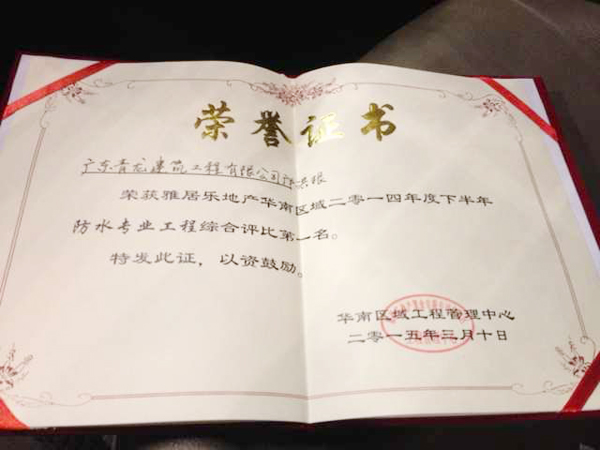 荣誉证书
广东青龙建筑工程有限公司许兴根
荣获雅居乐地产华南区域二零一四年度下半年
防水专业工程综合评比第一名。
特发此证，以资鼓励。
华南区域工程管理中心
二零一五年三月十日